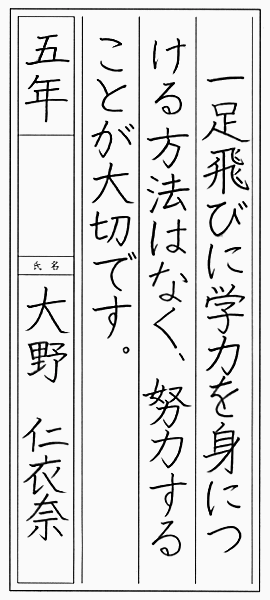 一足飛びに学力を身につ
ける方法はなく、努力する
ことが大切です。
五年
氏名
大野 仁衣奈